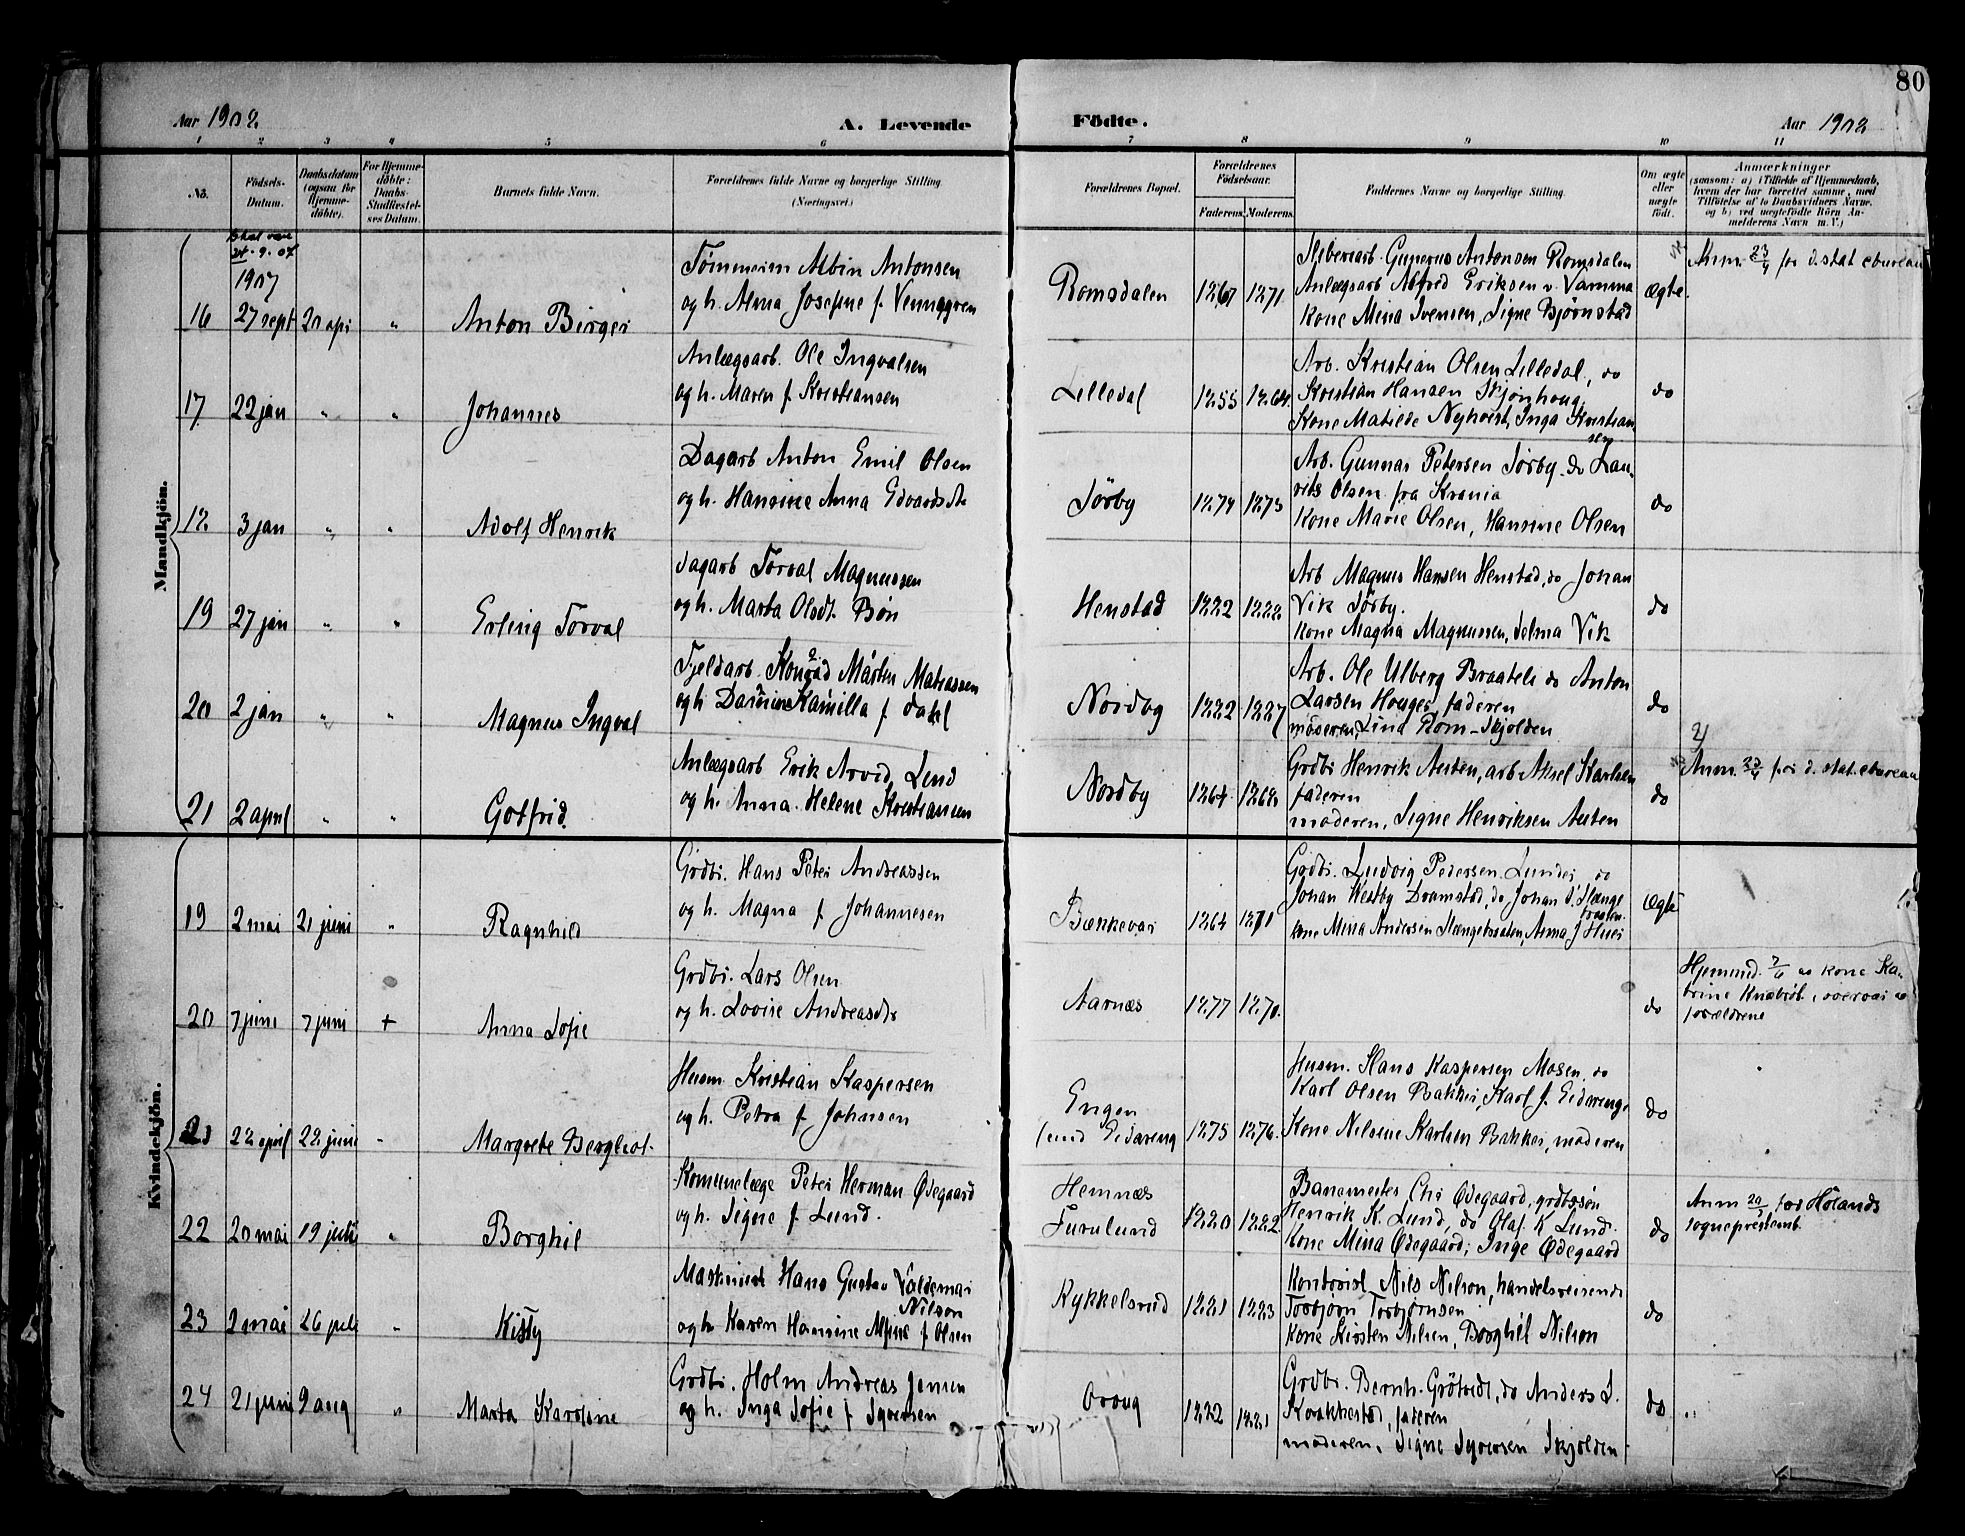 80
Aar 1908.
A. Levende
Födte.
Aar 1908
1 2 3 4 5 6 7 8 9 10 11
No.
Födsels-
Datum.
Daabsdatum
(ogsaa for
Hjemme-
döbte).
For Hjemme-
döbte:
Daabs-
Stadfæstel-
ses Datum.
Barnets fulde Navn.
Forældrenes fulde Navne og borgerlige Stilling
(Næringsvei.)
Forældrenes Bopæl.
Forældrenes
Födselsaar.
Faderens. Moderens.
Faddernes Navne og borgerlige Stilling.
Om ægte
eller
uægte
födt.
Anmærkninger
(saasom: a) i Tilfælde af Hjemmedaab,
hvem der har forrettet samme, med
Tilföielse af to Daabsvidners Navne.
og b) ved uægtefödte Börn An-
melderens Navn m. V.)
Mandkjön.
skal være
24-9-07
1907
16 27 sept 20 apr " Anton Birger
Tømmerm Albin Antonsen
og h. Alma Josefine f. Vennegren
Romsdalen 1867 1871.
Sliberiarb. Gunerius Antonsen Romsdalen
Anlægsarb Alfred Eriksen v. Vamma
Kone Mina Ivensen, Signe Bjørnstad
ægte.
Anm. 23/4 for d. stat. cbureau
17 22 jan " " Johannes
Anlægsarb. Ole Ingvalsen
og h. Maren f. Kristiansen
Lilledal 1855 1864.
Arb. Kristian Olsen Lilledal, do
Kristian Hansen Skjønhoug
Kone Matilde Nykvist, Inga Kristian
sen
do
18. 3 jan " " Adolf Henrik
Dagarb Anton Emil Olsen
og h. Hansine Anna Edvardsdtr
Sørby 1879 1873
Arb. Gunnar Petersen Sørby. do Lau-
rits Olsen fra Krania
Kone Marie Olsen, Hansine Olsen
do
19 27 jan " " Erling Torval
dagarb Torval Magnussen
og h. Marta Olsdt. Bøn
Henstad 1882 1888.
Arb Magnus Hansen Henstad, do Johan
Vik Sørby.
Kone Magna Magnussen, Selma Vik
do
20 2 jan " " Magnus Ingval
Fjeldarb. Konrad Mårten Matiassen
og h Kamilla f. dahl
Nordby 1882 1887
Arb. Ole Ulberg Braateli do Anton
Larsen Houger, faderen
moderen, Lina Rom-Skjolden
do
21 2 april " " Gotfrid.
Anlægsarb Erik Arvid Lind
og h. Anna Helene Kristiansen
Nordby 1864 1868.
Grdbr Henrik Austen, arb Aksel Karlsen
faderen
moderen. Signe Henriksen Austen
do
Anm. 23/4 for d. stat. cbureau
Kvindekjön.
19 2 mai 21 juni " Ragnhild
Grdbr. Hans Peter Andreassen
og h. Magna f. Johannesen
Bækkevar 1864 1871
Grdbr. Ludvig Pedersen Lunder do
Johan Westby Dramstad, do Johan S. Slænge
braaten.
Kone Mina Andersen Slængebraaten, Anna J Huer
ægte
20 7 juni 7 juni + Anna Sofie
Grdbr. Lars Olsen
og h. Lovise Andreasdtr
Aarnæs 1877 1870.
do
Hjemmd. 7/6 av kone Ka-
trine Knabrøt, overvar av
forældrene
21 22 april 28 juni " Margrete Bergliot.
Husm. Kristian Kaspersen
og h. Petra f. Johnsen
Engen
und Eidareng 1875 1876.
Husm. Hans Kaspersen Mosen. do
Karl Olsen Bakker, Karl J. Eidareng.
Kone Nilsene Karlsen Bakker, moderen
do
22 20 mai 19 juli " Borghil
Komunelæge Peter Herman Ødegaard
og h. Signe f. Lund.
Hemnæs
Furulund 1880 1882.
Banemester Chr Ødegaard, grdbrsøn
Henrik K. Lund, do Olaf K Lund.
Kone Mina Ødegaard, Inge Ødegaard
do
Anm 20/7 for Hølands
sogneprestemb.
23 2 mai 26 juli " Kitty
Maskinist Hans Gustav Valdemar
Nilson
og h Karen Hansine Alfine f Olsen
Kykkelsrud 1881 1883
Kontorist Nils Nilson, handelsreisende
Torbjørn Torbjørnsen
Kone Kirsten Nilsen, Borghil Nilson
do
24 21 juni 9 aug " Marta Karoline
Grdbr. Holm Andreas Jensen
og h. Inga Sofie f. Syversen
Oroug 1882 1881
Grdbr. Bernh. Grötvedt, do Anders L.
Krakkestad, faderen
moderen. Signe Syversen Skjolden.
do